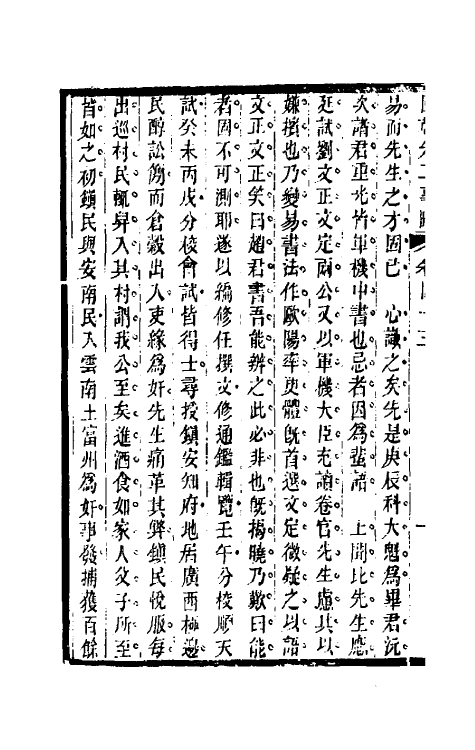 易而先生之才固已　心識之矣先是庚辰科大魁爲畢君沅
次諸君重光皆軍機中書也忌者因爲蜚語　上聞比先生應
廷試劉文正文定兩公又以軍機大臣充讀卷官先生慮其以
嫌擯也乃變易書法作歐陽率更體旣首選文定微疑之以語
文正文正笑曰趙君書吾能辨之此必非也旣揭曉乃歎曰能
者固不可測耶遂以編修任撰文修通鑑輯覽壬午分校順天
試癸未丙戌分校會試皆得士尋授鎮安知府地居廣西極邊
民醇訟簡而倉穀出入吏緣爲奸先生痛革其弊鎮民悅服每
出巡村民輒舁入其村謂我公至矣進酒食如家人父子所至
皆如之初鎮民與安南民入雲南土富州爲奸事發捕獲百餘